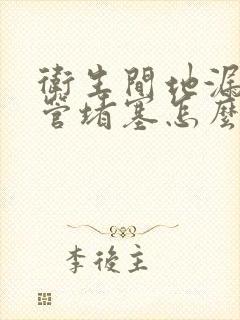 衛生間地漏
管堵塞怎麼
李後主